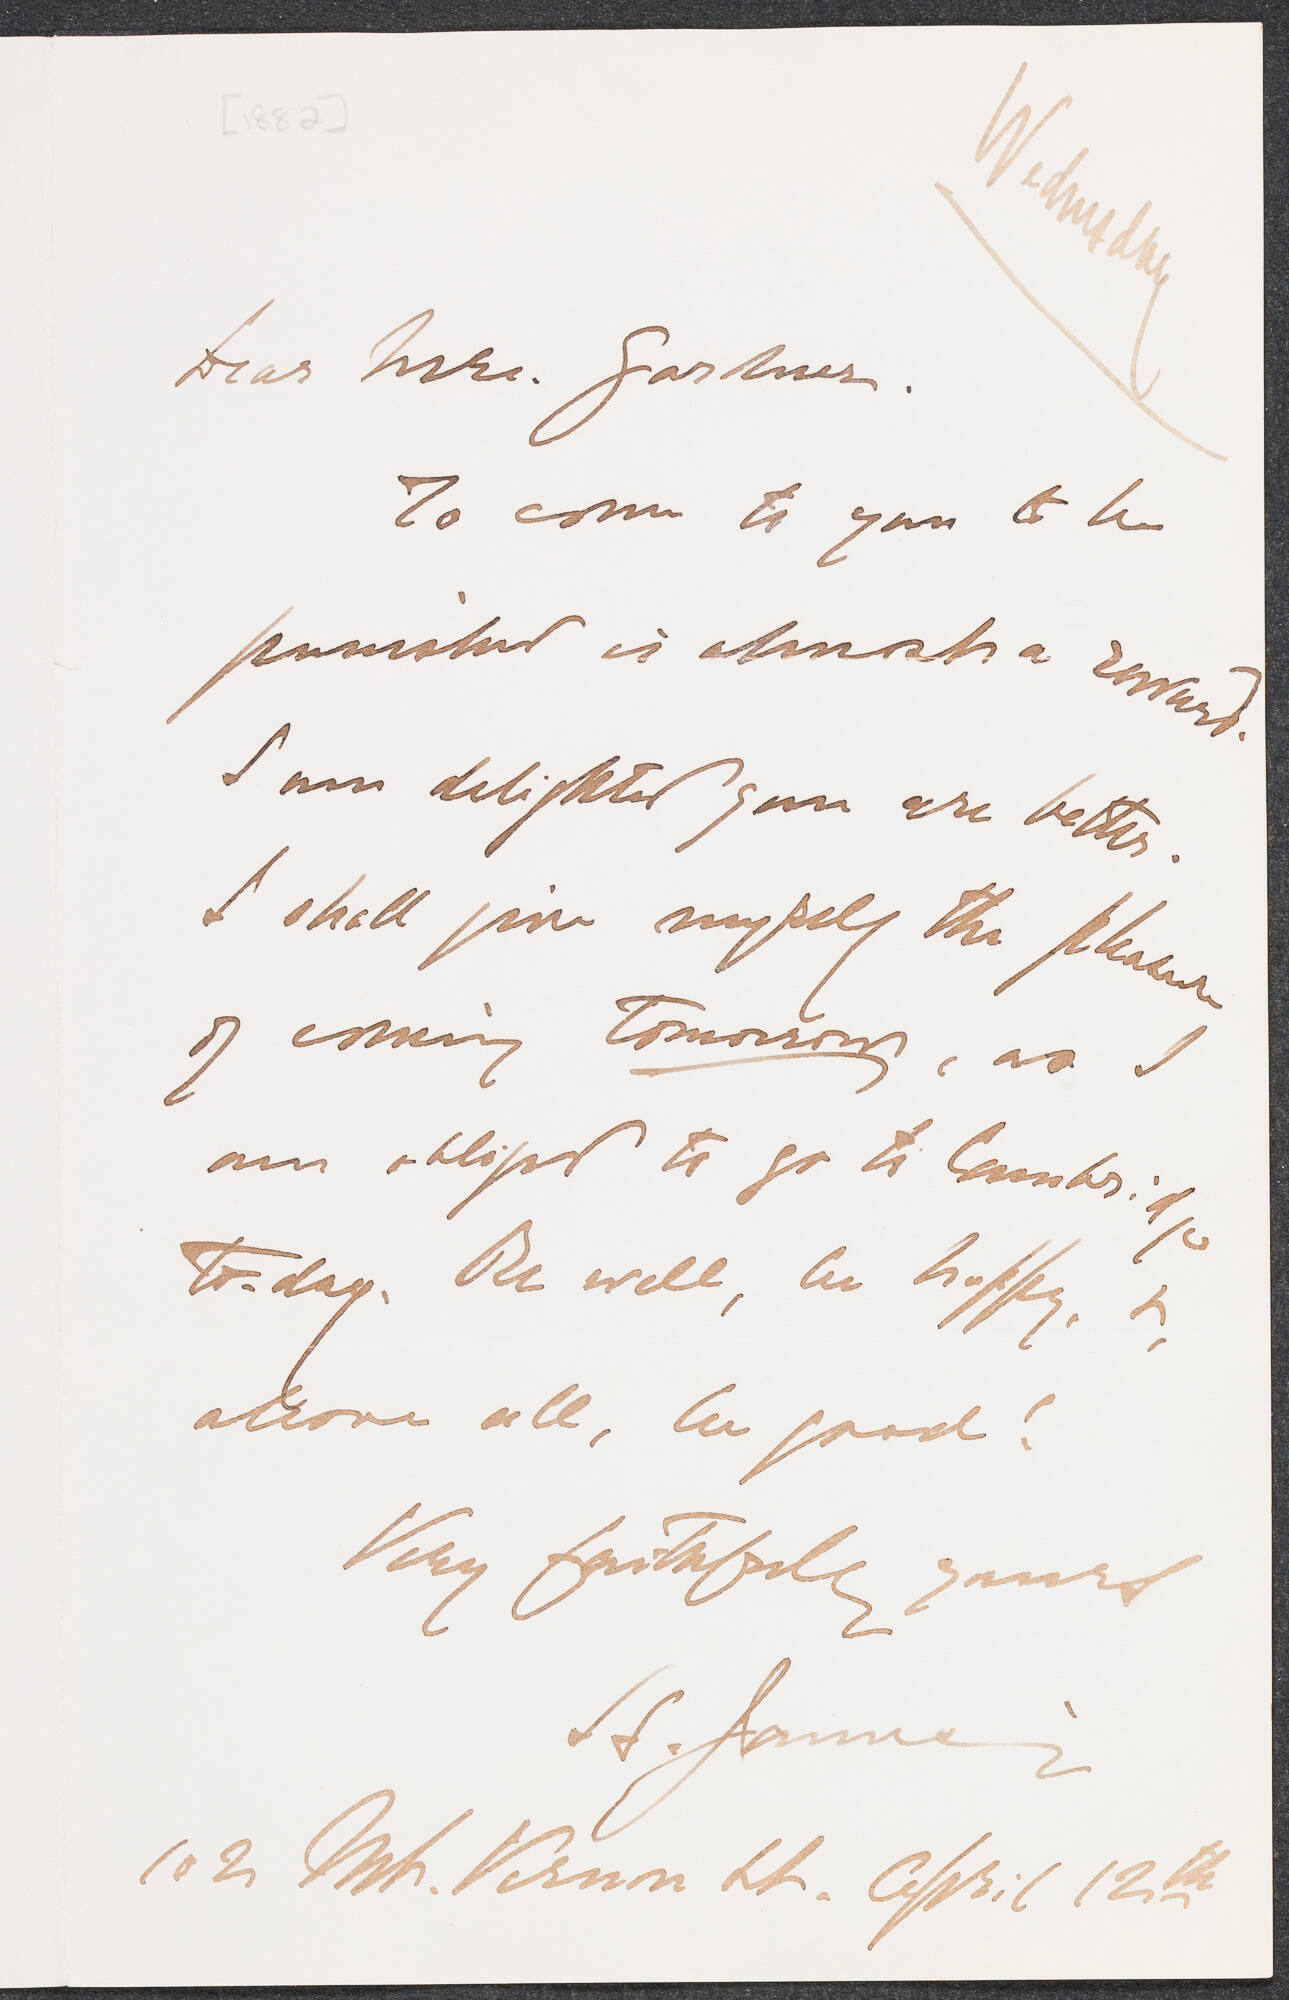 [1882]
Wednesday
Dear Mrs. Gardner.
To come to you to be
punished is almost a reward.
I am delighted you are better.
I shall give myself the pleasure
of coming tomorrow, as I
am obliged to go to Cambridge
to-day. Be well, be happy, &,
above all, be good!
Very faithfully yours
H. James
102 Mt. Vernon St. April 12th